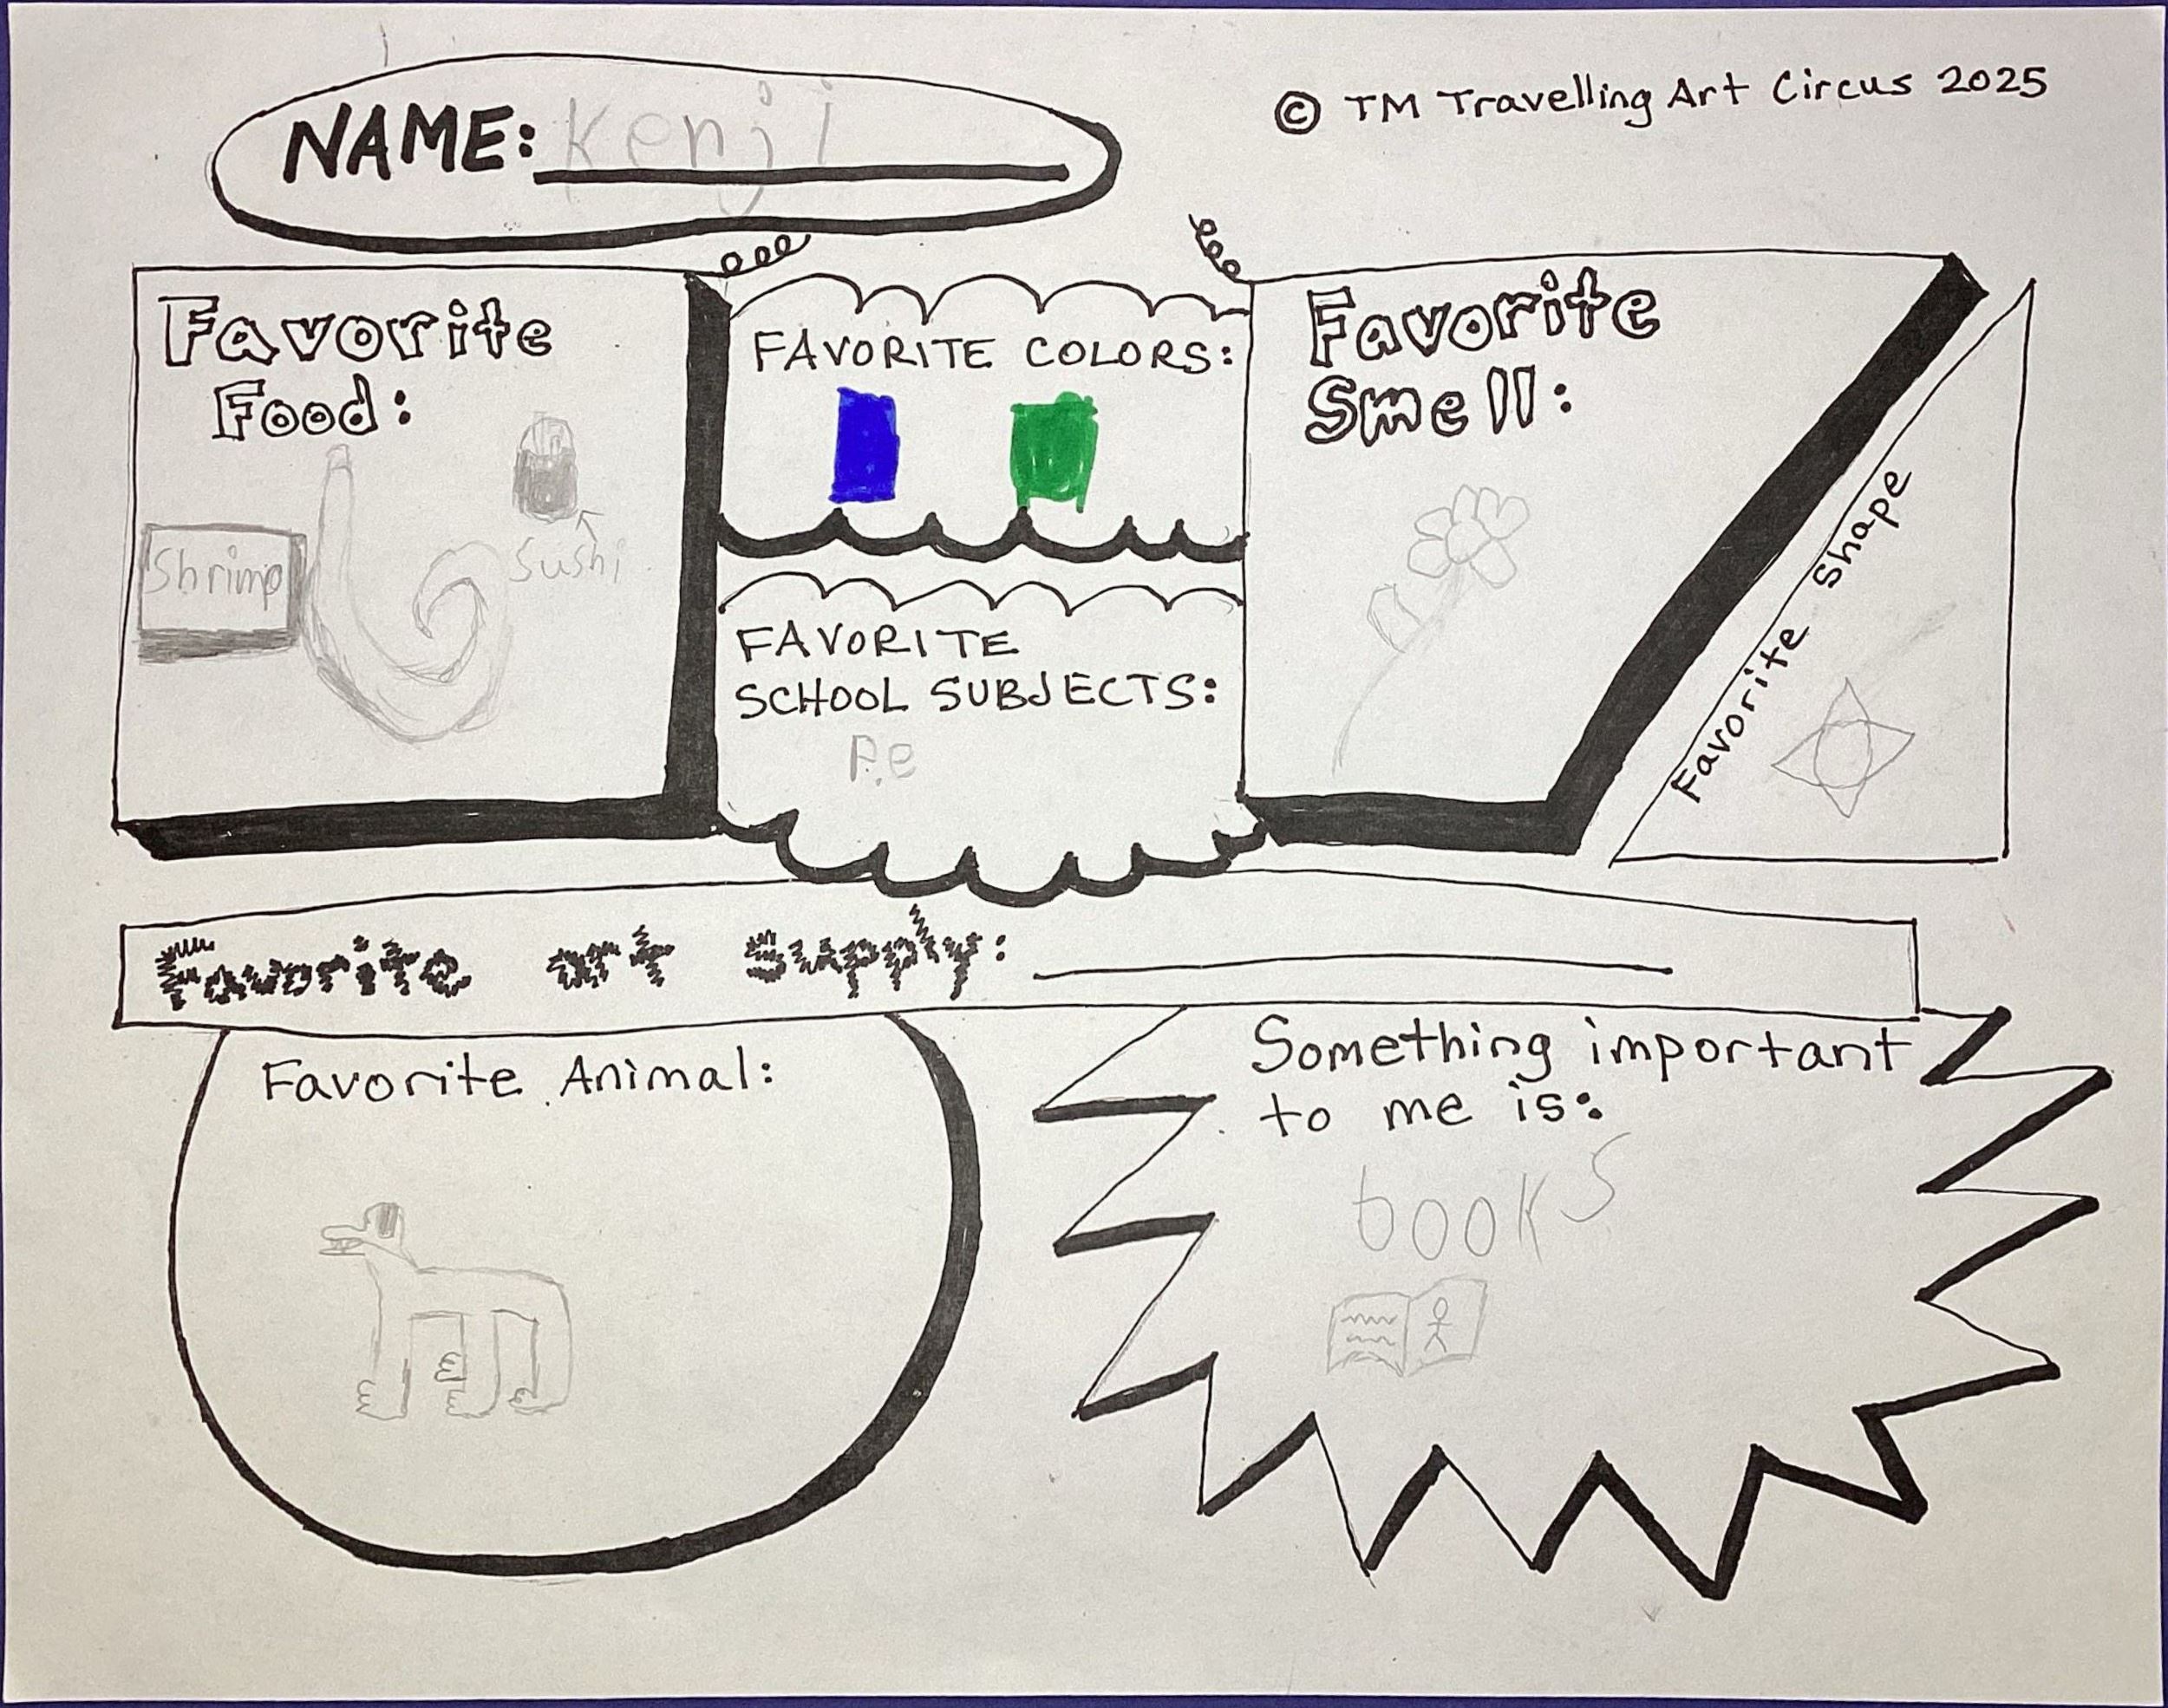 NAME: Kenji
© TM Travelling Art Circus 2025
Favorite
Food:
Shrimp
Sushi
FAVORITE COLORS:
FAVORITE
SCHOOL SUBJECTS:
P.e
Favorite
Smell:
Favorite Shape
Favorite art Supply:
Favorite Animal:
Something important
to me is:
books